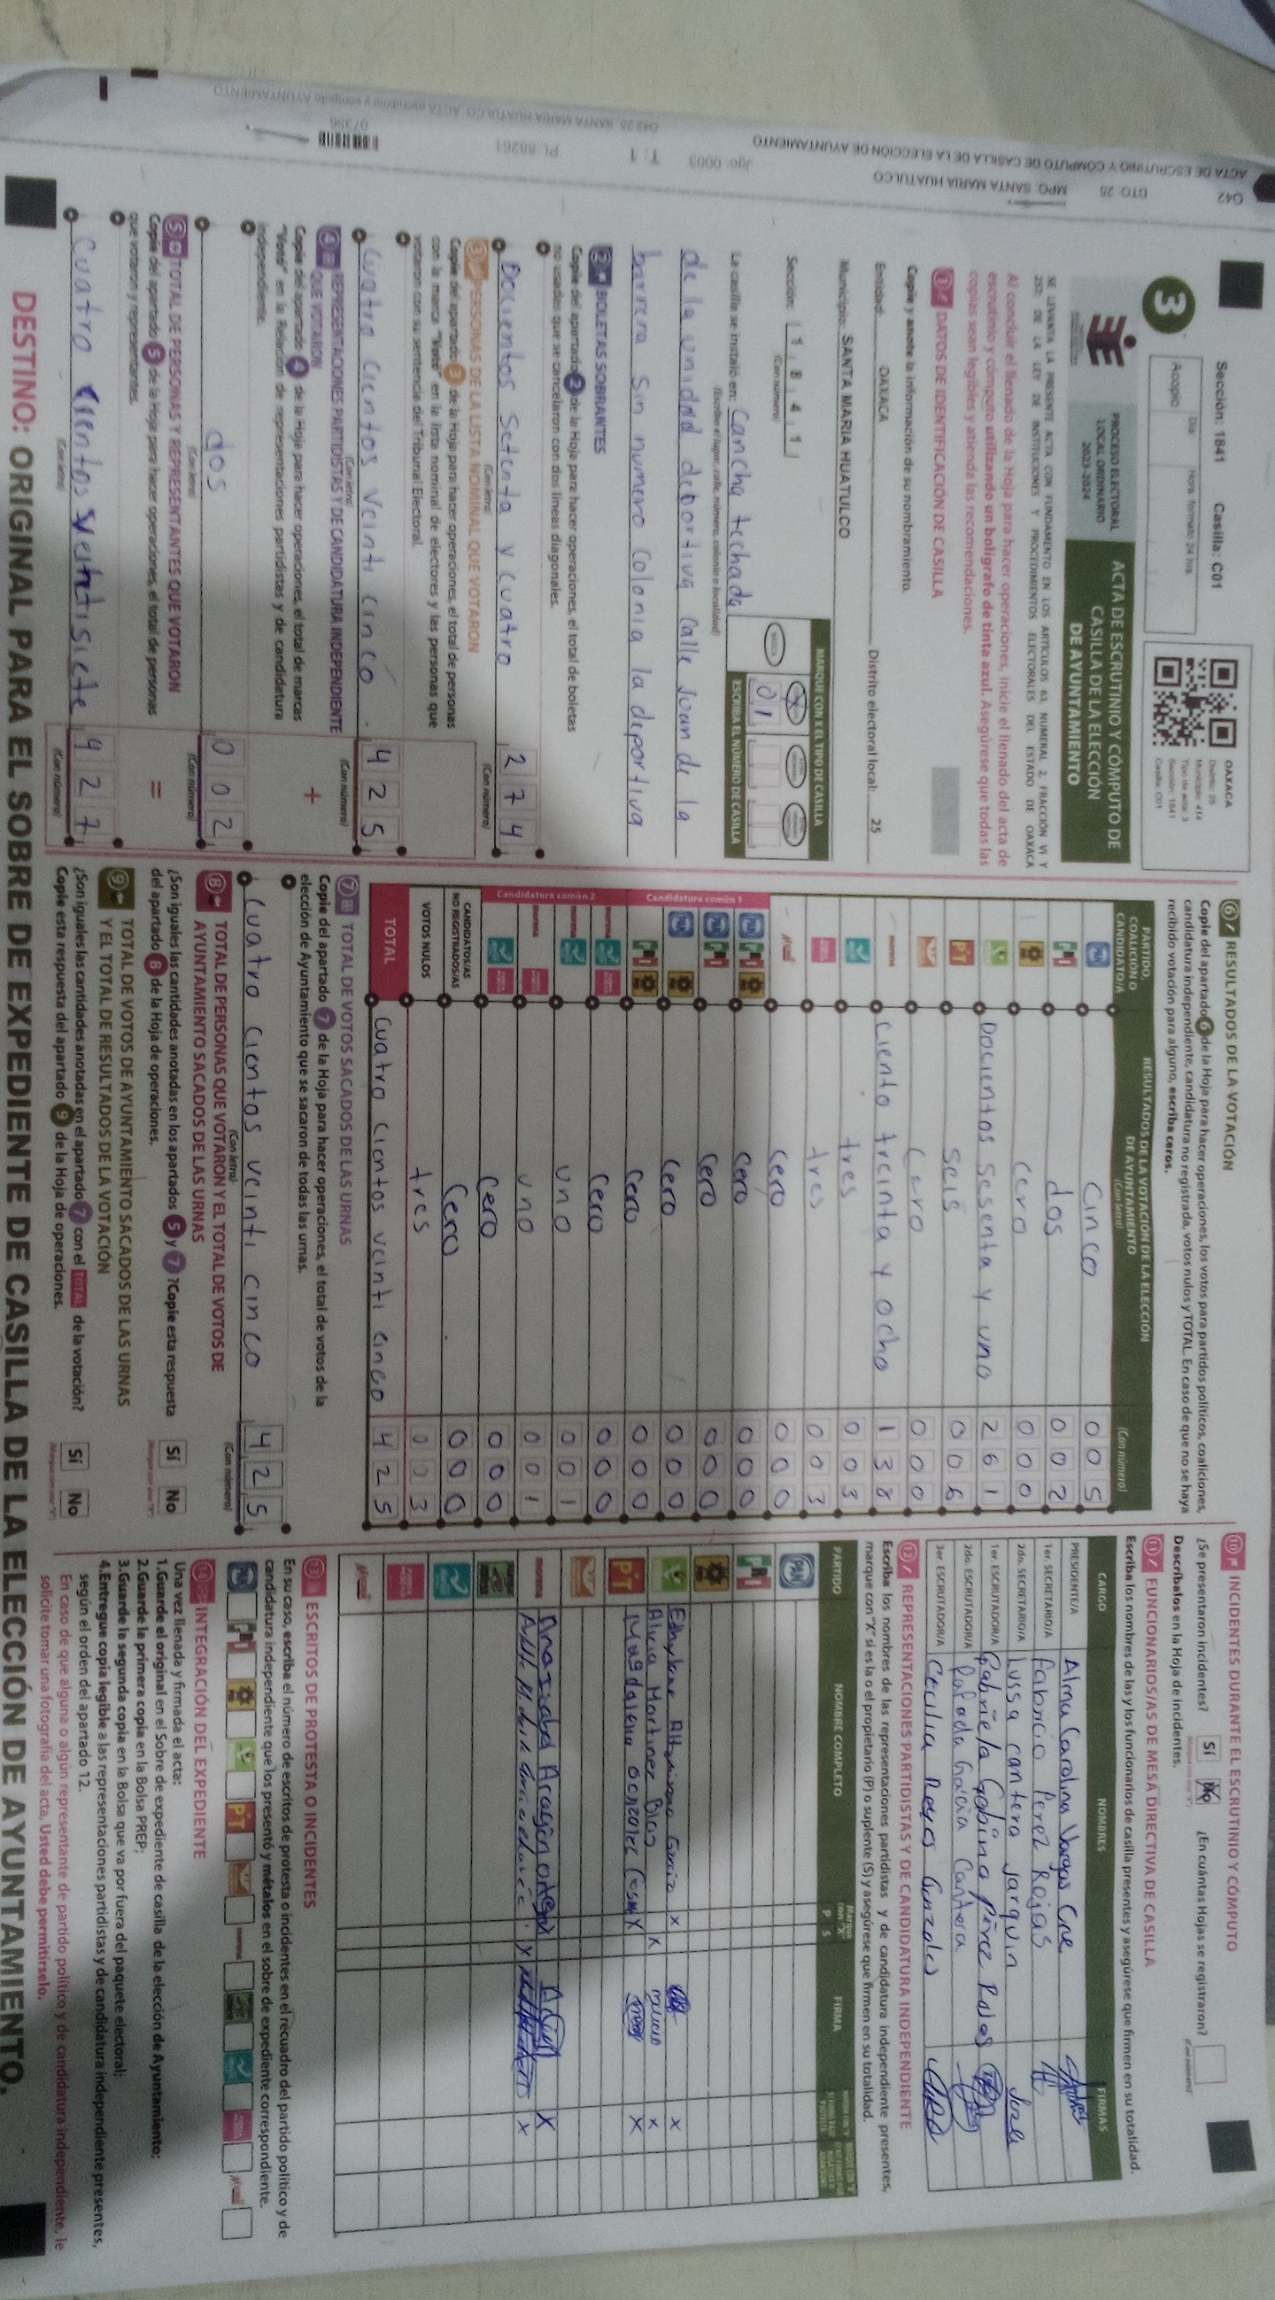 ACTA DE ESCRUTINIO Y CÓMPUTO DE CASILLA DE LA ELECCIÓN DE AYUNTAMIENTO
042 DTO: 25 MPO: SANTA MARIA HUATULCO
Jgo: 0003 T: 1
Sección: 1841 Casilla: C01
OAXACA
3
Acopio
Día Hora formato 24 hrs
PROCESO ELECTORAL
LOCAL ORDINARIO
2023-2024
ACTA DE ESCRUTINIO Y CÓMPUTO DE
CASILLA DE LA ELECCIÓN
DE AYUNTAMIENTO
SE LEVANTA LA PRESENTE ACTA CON FUNDAMENTO EN LOS ARTÍCULOS 63, NUMERAL 2, FRACCIÓN VI Y
230; DE LA LEY DE INSTITUCIONES Y PROCEDIMIENTOS ELECTORALES DEL ESTADO DE OAXACA
Al concluir el llenado de la Hoja para hacer operaciones, inicie el llenado del acta de
escrutinio y cómputo utilizando un bolígrafo de tinta azul. Asegúrese que todas las
copias sean legibles y atienda las recomendaciones.
1 DATOS DE IDENTIFICACIÓN DE CASILLA
Copie y anote la información de su nombramiento.
Entidad: OAXACA Distrito electoral local: 25
Municipio: SANTA MARIA HUATULCO
Sección: 1 8 4 1
(Con número)
MARQUE CON X EL TIPO DE CASILLA
ESCRIBA EL NÚMERO DE CASILLA
01
La casilla se instaló en: Cancha techada
(Escriba el lugar, calle, número, colonia o localidad)
de la unidad deportiva calle Juan de la
barrera sin numero colonia la deportiva
2 BOLETAS SOBRANTES
Copie del apartado 2 de la Hoja para hacer operaciones, el total de boletas
no usadas que se cancelaron con dos líneas diagonales.
Docientos setenta y cuatro 2 7 4
(Con letra) (Con número)
3 PERSONAS DE LA LISTA NOMINAL QUE VOTARON
Copie del apartado 3 de la Hoja para hacer operaciones, el total de personas
con la marca "Votó" en la lista nominal de electores y las personas que
votaron con su sentencia del Tribunal Electoral.
Cuatro cientos veinti cinco . 4 2 5
(Con letra) (Con número)
4 REPRESENTACIONES PARTIDISTAS Y DE CANDIDATURA INDEPENDIENTE
QUE VOTARON
Copie del apartado 4 de la Hoja para hacer operaciones, el total de marcas
"Votó" en la Relación de representaciones partidistas y de candidatura
independiente.
+
dos 0 0 2
(Con letra) (Con número)
5 TOTAL DE PERSONAS Y REPRESENTANTES QUE VOTARON
Copie del apartado 5 de la Hoja para hacer operaciones, el total de personas
que votaron y representantes.
=
Cuatro cientos veintisiete 4 2 7
(Con letra) (Con número)
6 RESULTADOS DE LA VOTACIÓN
Copie del apartado 6 de la Hoja para hacer operaciones, los votos para partidos políticos, coaliciones,
candidatura independiente, candidatura no registrada, votos nulos y TOTAL. En caso de que no se haya
recibido votación para alguno, escriba ceros.
PARTIDO, COALICIÓN O CANDIDATO/A
RESULTADOS DE LA VOTACIÓN DE LA ELECCIÓN
DE AYUNTAMIENTO
(Con letra) (Con número)
PAN Cinco 0 0 5
PRI dos 0 0 2
cero 0 0 0
Docientos sesenta y uno 2 6 1
PT seis 0 0 6
cero 0 0 0
morena ciento treinta y ocho 1 3 8
tres 0 0 3
tres 0 0 3
cero 0 0 0
Candidatura común 1
cero 0 0 0
cero 0 0 0
cero 0 0 0
cero 0 0 0
Candidatura común 2
cero 0 0 0
uno 0 0 1
uno 0 0 1
cero 0 0 0
CANDIDATOS/AS NO REGISTRADOS/AS Cero 0 0 0
VOTOS NULOS tres 0 0 3
TOTAL Cuatro cientos veinti cinco 4 2 5
7 TOTAL DE VOTOS SACADOS DE LAS URNAS
Copie del apartado 7 de la Hoja para hacer operaciones, el total de votos de la
elección de Ayuntamiento que se sacaron de todas las urnas.
Cuatro cientos veinti cinco 4 2 5
(Con letra) (Con número)
8 TOTAL DE PERSONAS QUE VOTARON Y EL TOTAL DE VOTOS DE
AYUNTAMIENTO SACADOS DE LAS URNAS
¿Son iguales las cantidades anotadas en los apartados 5 y 7 ?Copie esta respuesta
del apartado 8 de la Hoja de operaciones.
Sí No
9 TOTAL DE VOTOS DE AYUNTAMIENTO SACADOS DE LAS URNAS
Y EL TOTAL DE RESULTADOS DE LA VOTACIÓN
¿Son iguales las cantidades anotadas en el apartado 7 con el TOTAL de la votación?
Copie esta respuesta del apartado 9 de la Hoja de operaciones.
Sí No
10 INCIDENTES DURANTE EL ESCRUTINIO Y CÓMPUTO
¿Se presentaron incidentes? Sí No ¿En cuántas Hojas se registraron?
Descríbalos en la Hoja de incidentes.
11 FUNCIONARIOS/AS DE MESA DIRECTIVA DE CASILLA
Escriba los nombres de las y los funcionarios de casilla presentes y asegúrese que firmen en su totalidad.
CARGO NOMBRES FIRMAS
PRESIDENTE/A Alma Carolina Vargas Cruz
1er. SECRETARIO/A Fabricio Perez Rojas
2do. SECRETARIO/A Luisa cantera Jarquin
1er. ESCRUTADOR/A Gabriela Gopina Pérez Rales
2do. ESCRUTADOR/A Rafaela García Cantera
3er. ESCRUTADOR/A Cecilia Reyes Gonzales
12 REPRESENTACIONES PARTIDISTAS Y DE CANDIDATURA INDEPENDIENTE
Escriba los nombres de las representaciones partidistas y de candidatura independiente presentes,
marque con "X" si es la o el propietario (P) o suplente (S) y asegúrese que firmen en su totalidad.
PARTIDO NOMBRE COMPLETO P S FIRMA
Alicia Martinez Blas
PT Magdalena Gonzalez
13 ESCRITOS DE PROTESTA O INCIDENTES
En su caso, escriba el número de escritos de protesta o incidentes en el recuadro del partido político y de
candidatura independiente que los presentó y métalos en el sobre de expediente correspondiente.
14 INTEGRACIÓN DEL EXPEDIENTE
Una vez llenada y firmada el acta:
1.Guarde el original en el Sobre de expediente de casilla de la elección de Ayuntamiento;
2.Guarde la primera copia en la Bolsa PREP;
3.Guarde la segunda copia en la Bolsa que va por fuera del paquete electoral;
4.Entregue copia legible a las representaciones partidistas y de candidatura independiente presentes,
según el orden del apartado 12.
En caso de que alguna o algún representante de partido político y de candidatura independiente, le
solicite tomar una fotografía del acta, Usted debe permitírselo.
DESTINO: ORIGINAL PARA EL SOBRE DE EXPEDIENTE DE CASILLA DE LA ELECCIÓN DE AYUNTAMIENTO.